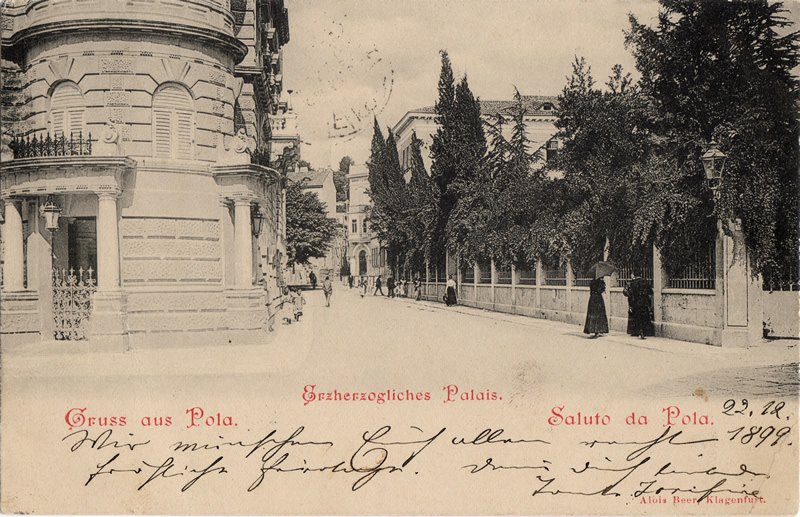 Erzherzogliches Palais.
Gruss aus Pola.
Saluto da Pola.
22.12.
1899.
Wir wünschen Euch allen recht
fröhliche Feiertage.
Tante Josefine
Alois Beer, Klagenfurt.